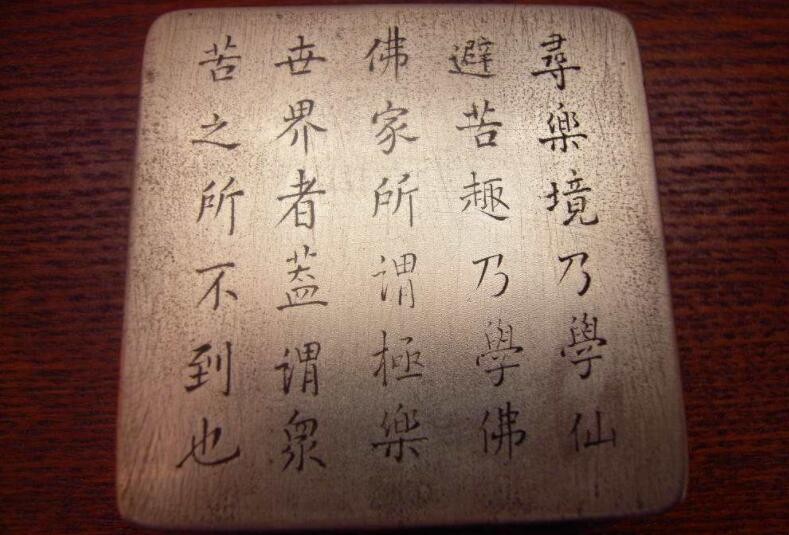 尋樂境乃學仙
避苦趣乃學佛
佛家所謂極樂
世界者蓋謂衆
苦之所不到也